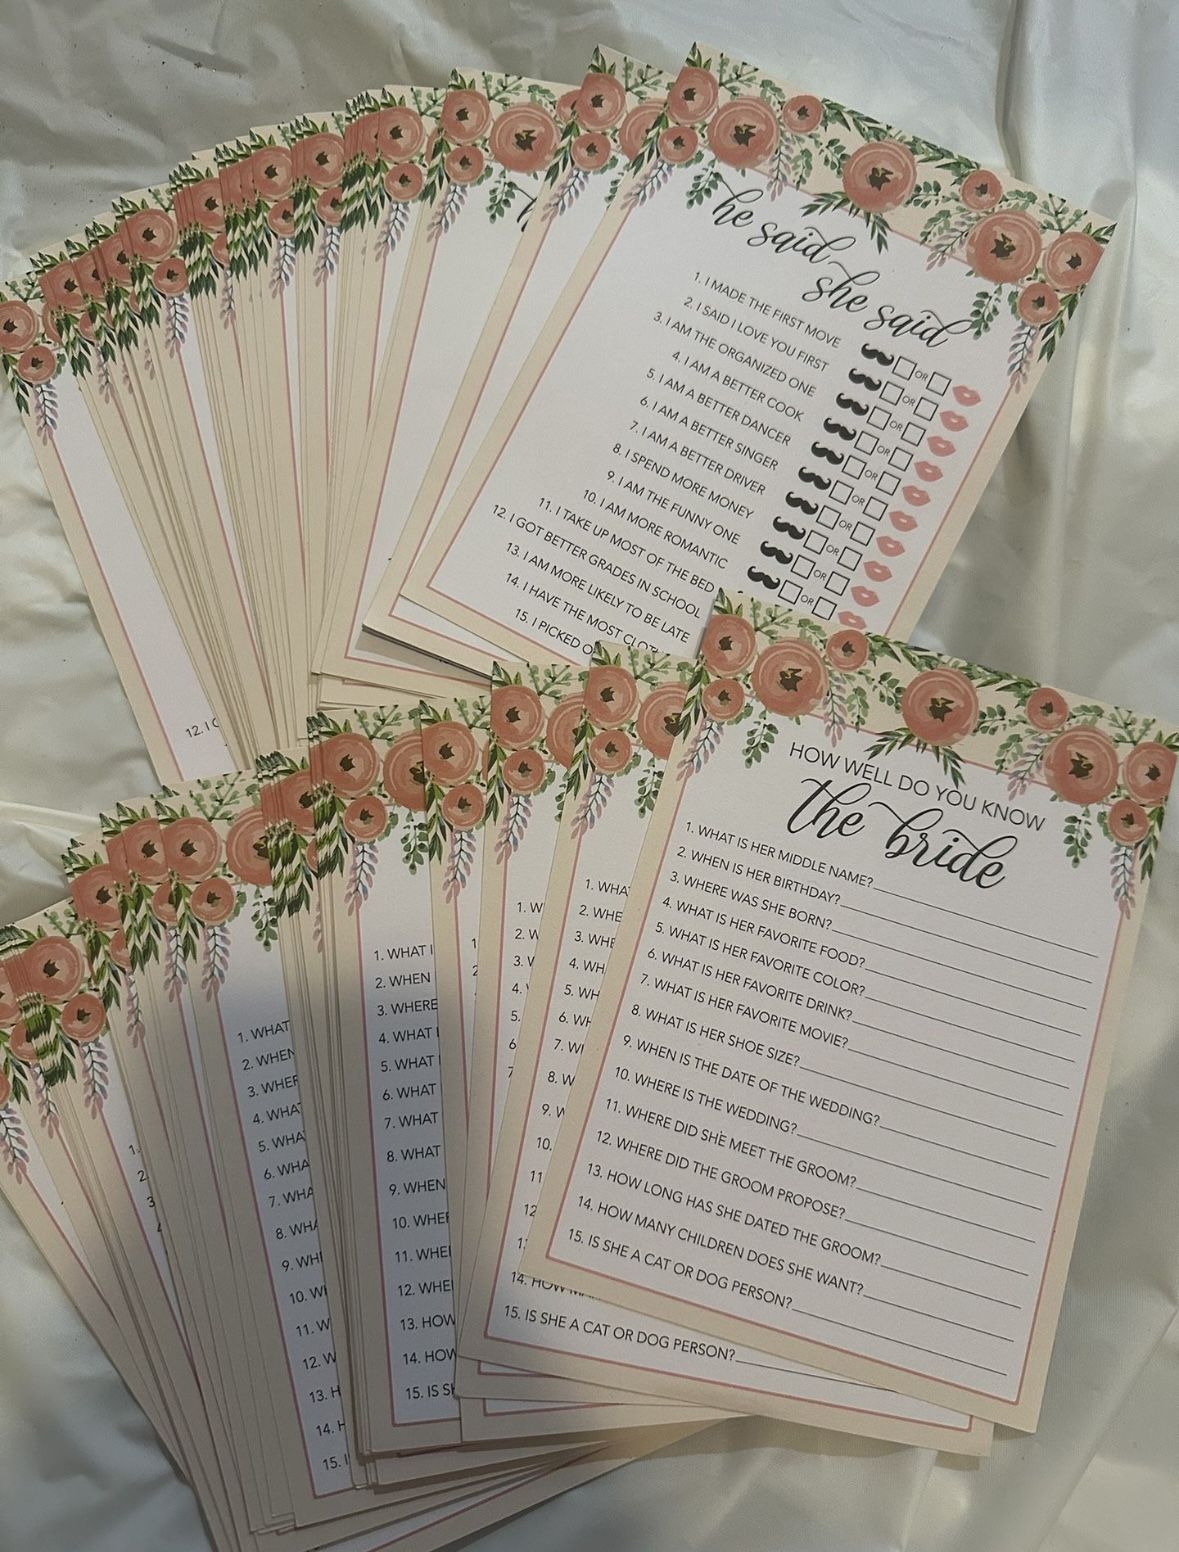 he said
she said
1. I MADE THE FIRST MOVE OR
2. I SAID I LOVE YOU FIRST OR
3. I AM THE ORGANIZED ONE OR
4. I AM A BETTER COOK OR
5. I AM A BETTER DANCER OR
6. I AM A BETTER SINGER OR
7. I AM A BETTER DRIVER OR
8. I SPEND MORE MONEY OR
9. I AM THE FUNNY ONE OR
10. I AM MORE ROMANTIC OR
11. I TAKE UP MOST OF THE BED
12. I GOT BETTER GRADES IN SCHOOL
13. I AM MORE LIKELY TO BE LATE
14. I HAVE THE MOST
15. I PICKED
12. I
HOW WELL DO YOU KNOW
the bride
1. WHAT IS HER MIDDLE NAME?
2. WHEN IS HER BIRTHDAY?
3. WHERE WAS SHE BORN?
4. WHAT IS HER FAVORITE FOOD?
5. WHAT IS HER FAVORITE COLOR?
6. WHAT IS HER FAVORITE DRINK?
7. WHAT IS HER FAVORITE MOVIE?
8. WHAT IS HER SHOE SIZE?
9. WHEN IS THE DATE OF THE WEDDING?
10. WHERE IS THE WEDDING?
11. WHERE DID SHE MEET THE GROOM?
12. WHERE DID THE GROOM PROPOSE?
13. HOW LONG HAS SHE DATED THE GROOM?
14. HOW MANY CHILDREN DOES SHE WANT?
15. IS SHE A CAT OR DOG PERSON?
14. HOW
15. IS SHE A CAT OR DOG PERSON?
1. WHAT I
2. WHEN
3. WHERE
4. WHAT
5. WHAT
6. WHAT
7. WHAT
8. WHAT
9. WHEN
10. WHE
11. WHE
12. WHE
13. HOW
14. HOW
15. IS
1. WHAT
2. WHEN
3. WHER
4. WHA
5. WHA
6. WHA
7. WHA
8. WHA
9. WH
10. W
11. W
12. W
13. H
14. H
15. I